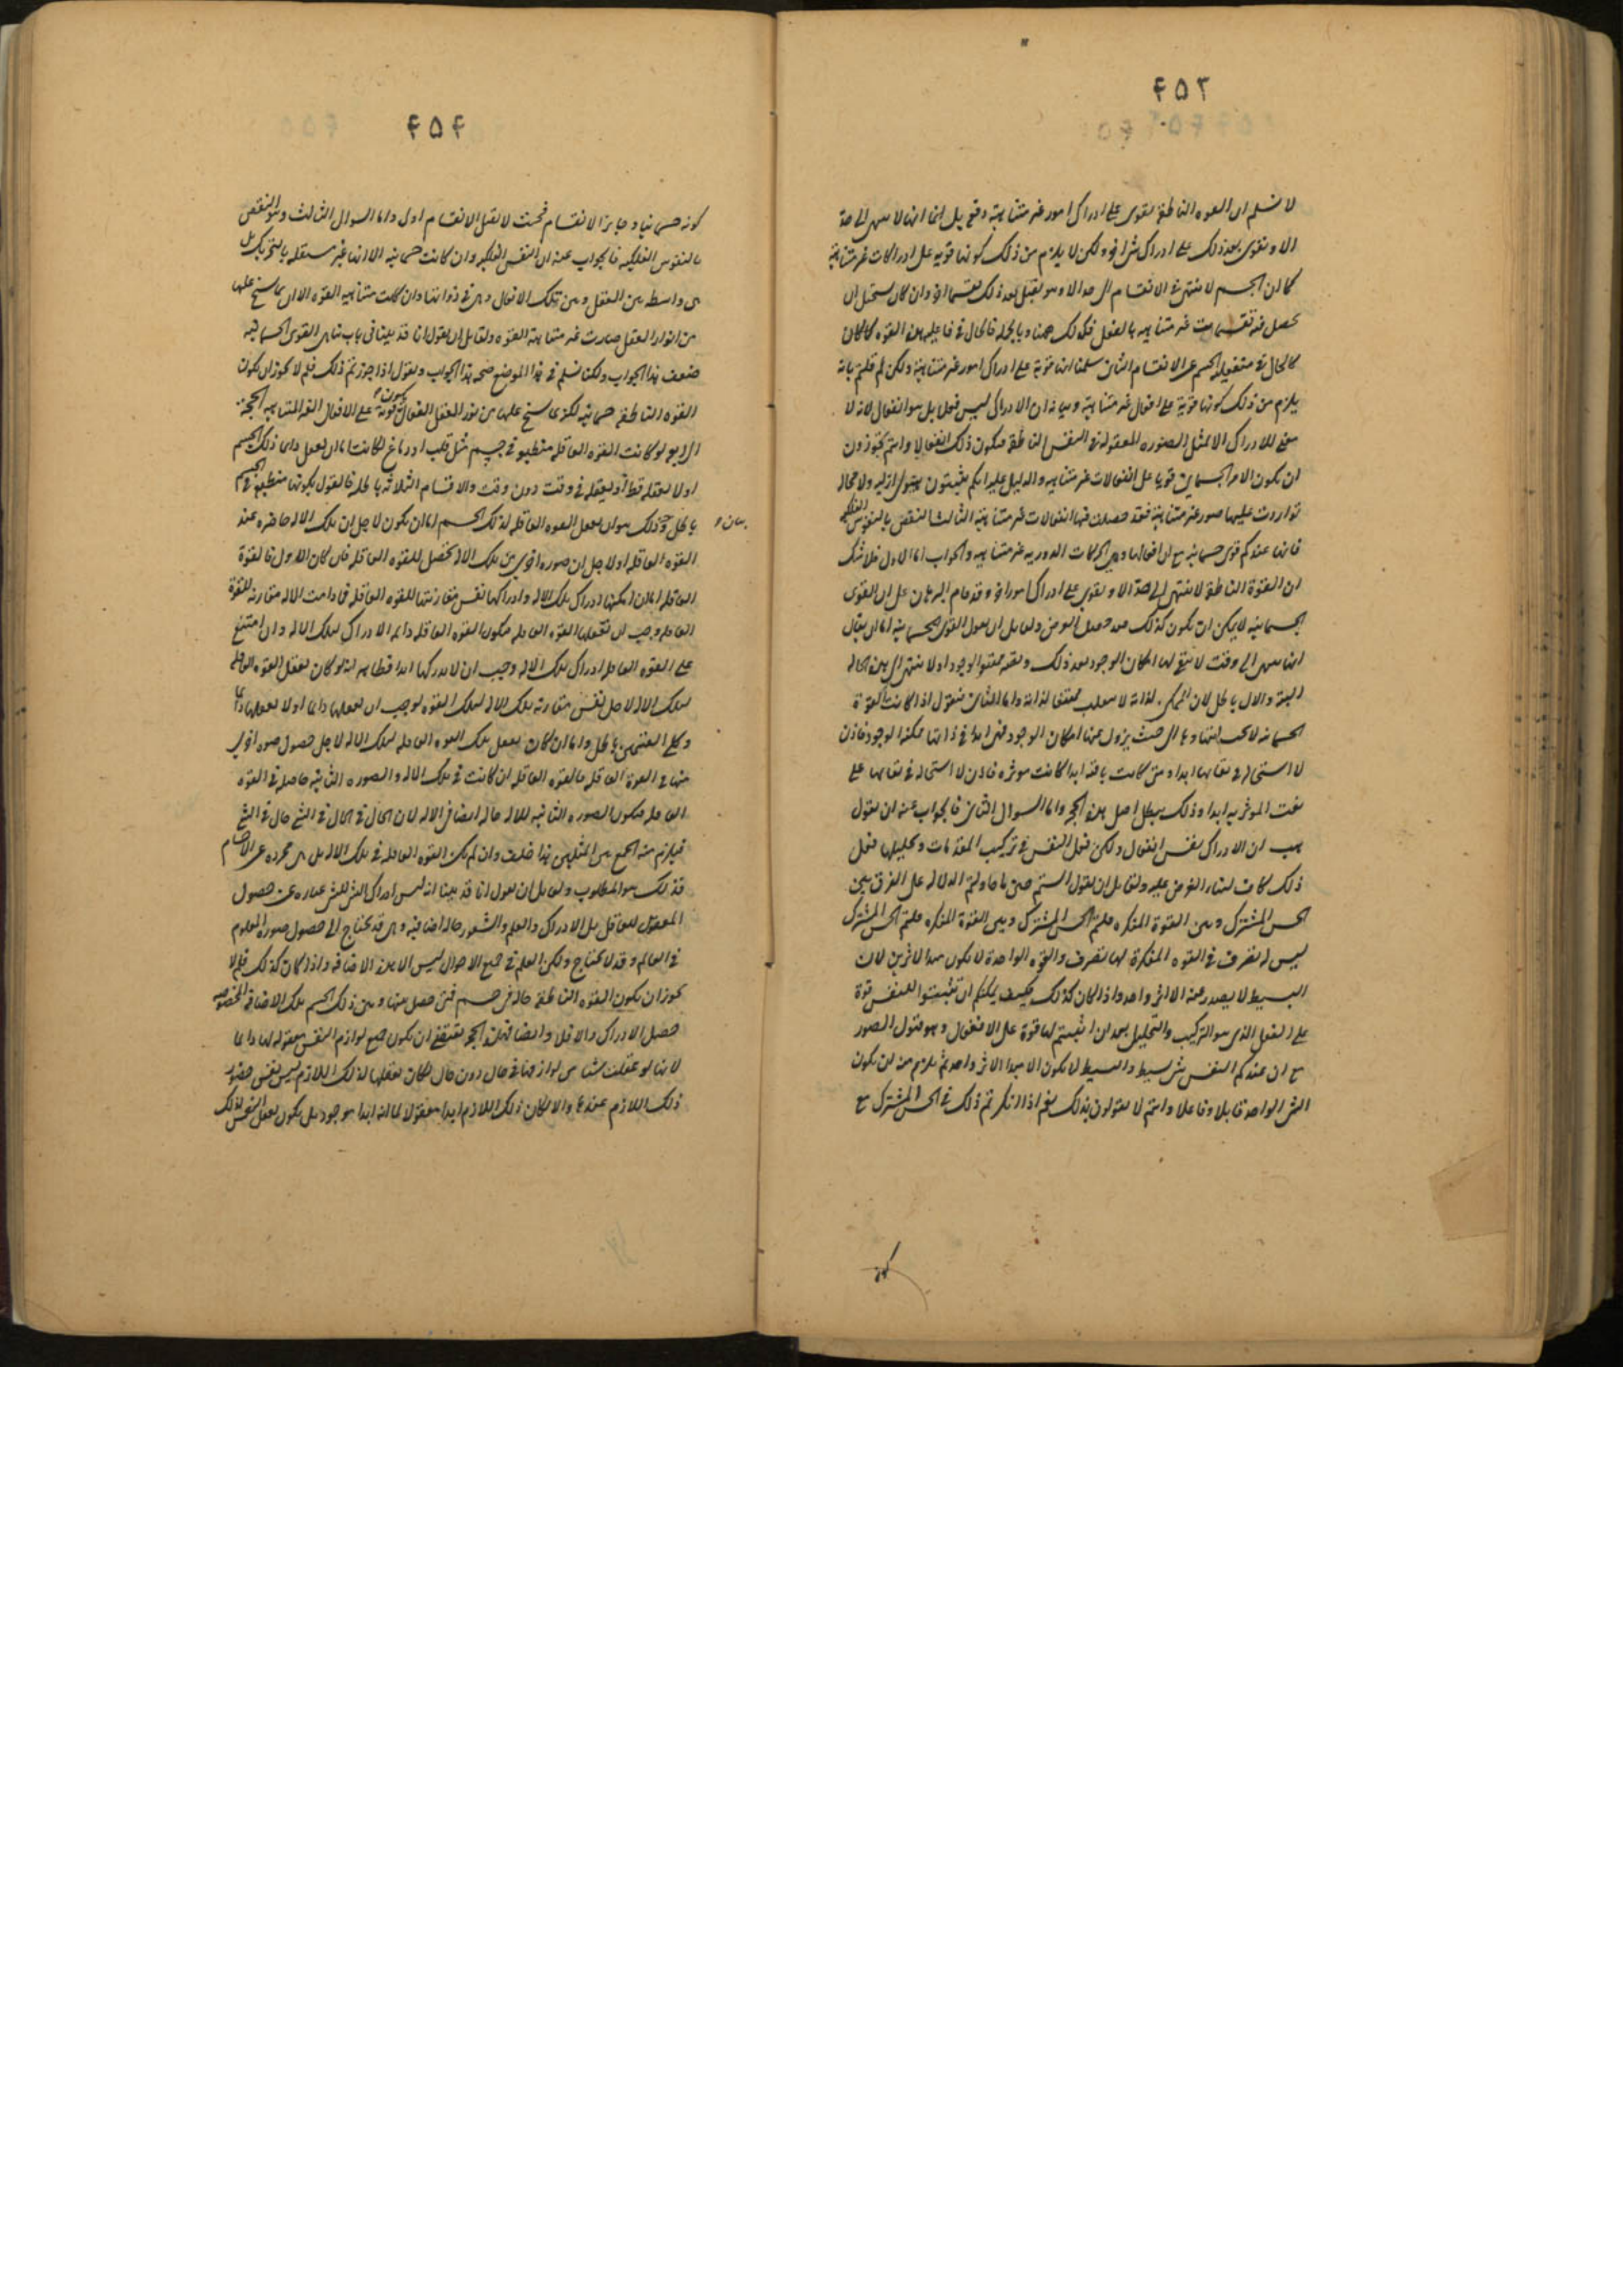 ۴۵۳
لا نسلم ان القوه الناطقة تقوى على ادراك امور غير متناهية دفعة بل انها لا تنتهى الى حد
الا وتقوى بعد ذلك على ادراك شئ اخر ولكن لا يلزم من ذلك كونها قوية على ادراكات غير متناهية
كما ان الجسم لا ينتهى فى الانقسام الى حد الا وهو يقبل بعد ذلك تقسيما اخر وان كان يستحيل ان
يحصل فيه تقسيمات غير متناهية بالفعل فكذلك ههنا وبالجملة فالحال فى فاعلية هذه القوه كالحال
فى منفعلية الجسم عن الانقسام الثانى سلمنا انها قوية على ادراك امور غير متناهية ولكن لم قلتم بانه
يلزم من ذلك كونها قوية على افعال غير متناهية وبيانه ان الادراك ليس فعلا بل هو انفعال لانه لا
معنى للادراك الا تمثل الصورة المعقولة فى النفس الناطقة فيكون ذلك انفعالا وانتم تجوزون
ان يكون الامر الجسمانى قويا على انفعالات غير متناهية والدليل عليه انكم تثبتون هيولى ازلية ولا محالة
تواردت عليها صور غير متناهية فقد حصلت فيها انفعالات غير متناهية الثالث النقض بالنفوس الفلكية
فانها عندكم قوى جسمانية مع ان افعالها وهى الحركات الدورية غير متناهية والجواب اما الاول فلا شك
ان القوة الناطقة لا تنتهى الى حد الا وتقوى على ادراك امور اخر وقد قام البرهان على ان القوى
الجسمانية لا يمكن ان تكون كذلك فقد حصل الغرض ولقائل ان يقول القوى الجسمانية اما ان يقال
انها تنتهى الى وقت لا يبقى لها امكان الوجود بعد ذلك وتصير ممتنعة الوجود او لا تنتهى الى هذه الحالة
البتة والاول باطل لان الممكن لذاته لا ينقلب ممتنعا لذاته واما الثانى فنقول اذا كانت القوة
الجسمانية لا يجب انتهاؤها الى حيث يزول عنها امكان الوجود فهى ابدا فى ذاتها ممكنة الوجود فاذن
لا استحالة فى بقائها ابدا ومتى كانت باقية ابدا كانت مؤثرة فاذن لا استحالة فى بقائها على
نعت المؤثرية ابدا وذلك يبطل اصل هذه الحجة واما السؤال الثانى فالجواب عنه ان نقول
هب ان الادراك نفس انفعال ولكن فعل النفس فى تركيب المقدمات وتحليلها فعل
ذلك كاف لبناء الغرض عليه ولقائل ان يقول الستم حين ما حاولتم الدلالة على الفرق بين
الحس المشترك وبين القوة المفكرة قلتم الحس المشترك
ليس له تصرف فى القوه المفكرة لها تصرف والقوه الواحدة لا تكون مبدأ لاثرين لان
البسيط لا يصدر عنه الا اثر واحد واذا كان كذلك فكيف يمكنكم ان تثبتوا للنفس قوة
على الفعل الذى هو التركيب والتحليل بعد ان اثبتم لها قوة على الانفعال وهو قبول الصور
مع ان عندكم النفس شئ بسيط والبسيط لا يكون الا مبدأ لاثر واحد ثم يلزم منه ان يكون
الشئ الواحد قابلا وفاعلا وانتم لا تقولون بذلك نعم اذا انكرتم ذلك فى الحس المشترك مع
۴۵۴
كونه جسمانيا وجايز الانقسام فبحيث لا يقبل الانقسام اولى واما السوال الثالث وهو النقض
بالنفوس الفلكية فالجواب عنه ان النفس الفلكية وان كانت جسمانية الا انها غير مستقلة بالتحريك بل
هى واسطة بين العقل وبين تلك الافعال وهى فى ذواتها وان كانت متناهية القوه الا ان بما يسنح عليها
من انوار العقل صارت غير متناهية القوه ولقائل ان يقول انا قد بينا فى باب تناهى القوى الجسمانية
ضعف هذا الجواب ولكنا نسلم فى هذا الموضع صحة هذا الجواب ونقول اذا جوزتم ذلك فلم لا يجوز ان يكون
القوه الناطقة جسمانية لكن بما يسنح عليها من نور العقل الفعال يكون قوية على الافعال الغير المتناهية الحجة
الرابع لو كانت القوه العاقلة منطبعة فى جسم مثل قلب او دماغ لكانت اما ان تعقل دايما ذلك الجسم
او لا تعقله قط او تعقله فى وقت دون وقت والاقسام الثلاثة باطلة فالقول بكونها منطبعة فى الجسم
باطل بيان ذلك هو ان تعقل القوه العاقلة لذلك الجسم اما ان يكون لاجل ان تلك الالة حاضره عند
القوه العاقلة او لاجل ان صوره اخرى من تلك الالة تحصل للقوه العاقلة فان كان الاول فالقوة
العاقلة اما ان امكنها ادراك تلك الالة وادراكها نفس مقارنتها للقوه العاقلة فما دامت الالة مقارنة للقوة
العاقلة وجب ان تعقلها القوه العاقلة فيكون القوه العاقلة دايمة الادراك لتلك الالة وان امتنع
على القوه العاقلة ادراك تلك الالة وجب ان لا تدركها ابدا فظاهر انه لو كان تعقل القوه العاقلة
لتلك الالة لاجل نفس مقارنة تلك الالة لتلك القوه لوجب ان تعقلها دايما او لا تعقلها دايما
وكلا القسمين باطل واما ان كان تعقل تلك القوه العاقلة لتلك الالة لاجل حصول صوره اخرى
منها فى القوة العاقلة فالقوه العاقلة ان كانت فى تلك الالة والصوره الثانية حاصلة فى القوه
العاقلة فتكون الصورة الثانية للالة حالة ايضا فى الالة لان الحال فى الحال فى الشئ حال فى الشئ
فيلزم منه الجمع بين المثلين هذا خلف وان لم تكن القوه العاقلة فى تلك الالة بل هى مجردة عن الاجسام
فذلك هو المطلوب ولقائل ان يقول انا قد بينا انه ليس ادراك الشئ للشئ عبارة عن حصول
المعقول للعاقل بل الادراك والعلم والشعور حالة اضافية وهى قد تحتاج الى حصول صورة المعلوم
فى العالم وقد لا تحتاج ولكن العلم فى جميع الاحوال ليس الا هذه الاضافة واذا كان كذلك فلم لا
يجوز ان يكون القوه الناطقة حالة فى جسم فمتى حصل بينها وبين ذلك الجسم تلك الاضافة المخصوصة
حصل الادراك والا فلا وايضا فهذه الحجة تقتضى ان يكون جميع لوازم النفس معقولة لها دايما
لانها لو عقلت شيئا من لوازمها فى حال دون حال لكان تعقلها لذلك اللازم ليس نفس حضور
ذلك اللازم عندها والا لكان ذلك اللازم ابدا معقولا لها لانه ابدا موجود بل يكون تعقل النفس لذلك